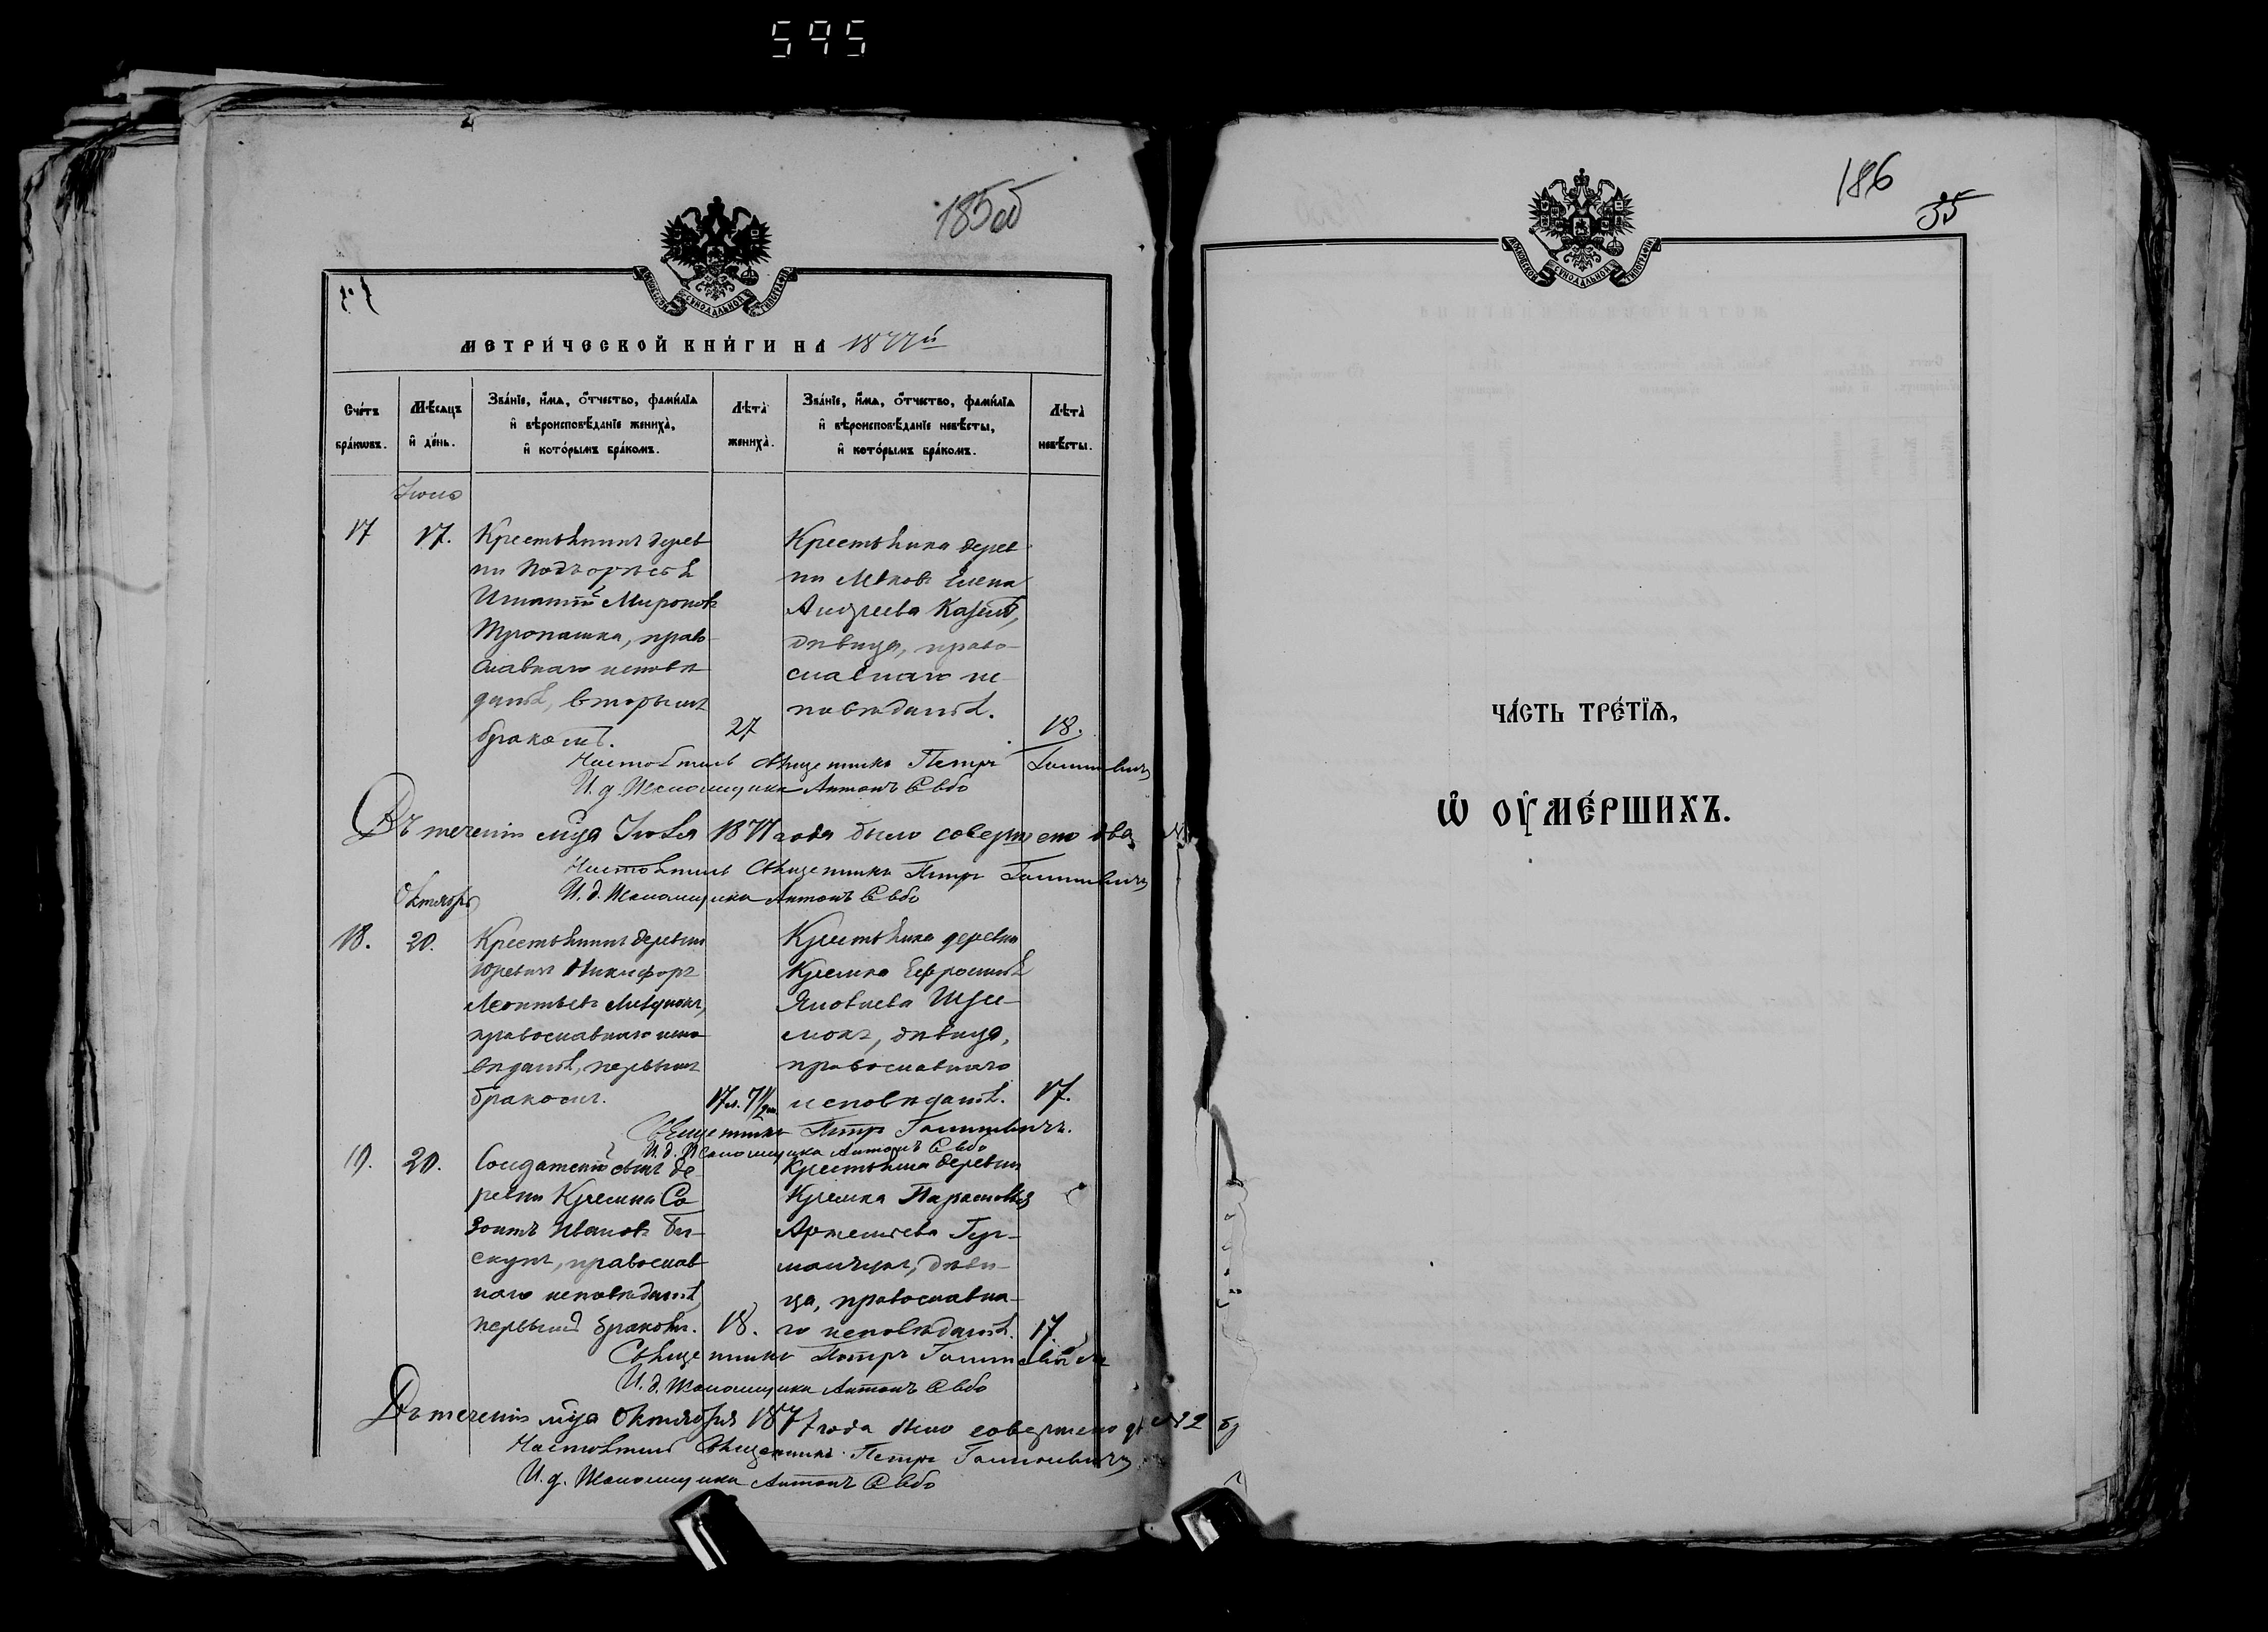 595
185об
МОСКОВСКОЙ СѴНОДАЛЬНОЙ ТИПОГРАФІИ
МЕТРИ́ЧЕСКОЙ КНИ́ГИ НА 1877й
Сче́тъ бра́кѡвъ.
Мѣ́сяцъ и де́нь.
Зва́нїе, и́мя, о́тчество, фами́лїа и вѣроисповѣ́данїе жениха̀, и кото́рымъ бра́комъ.
Лѣ́та жениха̀.
Зва́нїе, и́мя, о́тчество, фами́лїа и вѣроисповѣ́данїе невѣ́сты, и кото́рымъ бра́комъ.
Лѣ́та невѣ́сты.
17
17.
Крестьянинъ дерев
ни
Игнатій Миронов
Тропашка, право-
славнаго исповѣ
данія, вторымъ
бракомъ.
27
Крестьянка дерев
ни Елена
Андреева
дѣвица, право-
славнаго ис-
повѣданія.
18.
Настоятель Священникъ Петръ
И. д. Псаломщика Антонъ
Въ теченіи мца Іюля 1877 года было совершено два
Настоятель Священникъ Петръ
И. д. Псаломщика Антонъ
Октябрь
18.
20.
Крестьянинъ деревни
Юревичъ Никифоръ
Леонтьевъ
православнаго испо
вѣданія, первымъ
бракомъ.
17 л. 7 1/2 м.
Крестьянка деревни
Кремна Ефросинія
Яковлева
дѣвица,
православнаго
исповѣданія.
17.
Священникъ Петръ
И. д. Псаломщика Антонъ
19.
20.
Солдатскій сынъ де
ревни Кремна Со
зонтъ Ивановъ Би-
скупъ, православ
наго исповѣданія,
первымъ бракомъ.
18.
Крестьянка деревни
Кремна Параскевія
Артемьева Гур-
манчукъ, дѣви-
ца, православна-
го исповѣданія.
17.
Священникъ Петръ
И. д. Псаломщика Антонъ
Въ теченіи мца Октября 1877 года было совершено № 2
Настоятель Священникъ Петръ
И. д. Псаломщика Антонъ
186
35
МОСКОВСКОЙ СѴНОДАЛЬНОЙ ТИПОГРАФІИ
ЧА́СТЬ ТРЕ́ТЇѦ,
Ѡ ОУМЕ́РШИХЪ.